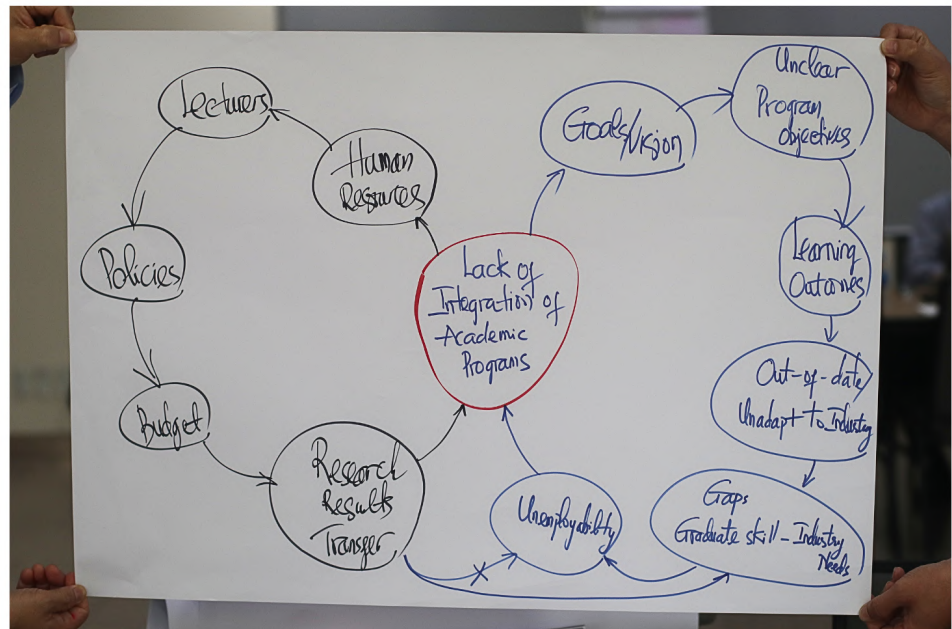 Lecturers
Human
Resources
Policies
Budget
Research
Results
Transfer
Lack of
Integration of
Academic
Programs
Goals/Vision
Unclear
Program
objectives
Learning
Outcomes
Out-of-date
Unadapt to Industry
Gaps
Graduate skill - Industry
Needs
Unemployability